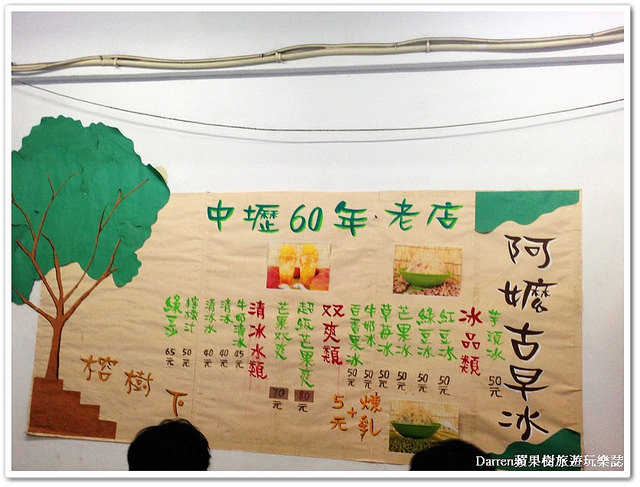 中壢60年·老店
阿嬤古早冰
芋頭冰 50元
冰品類
紅豆冰 50元
綠豆冰 50元
芒果冰 50元
草莓冰 50元
牛奶冰 50元
百香果冰 50元
双爽類
超級芒果爽 80元
芒果双爽 70元
清冰水類
牛奶清冰 45元
清冰 40元
清冰水 40元
檸檬汁 50元
65元
煉乳+5元
榕樹下
Darren蘋果樹旅遊玩樂誌